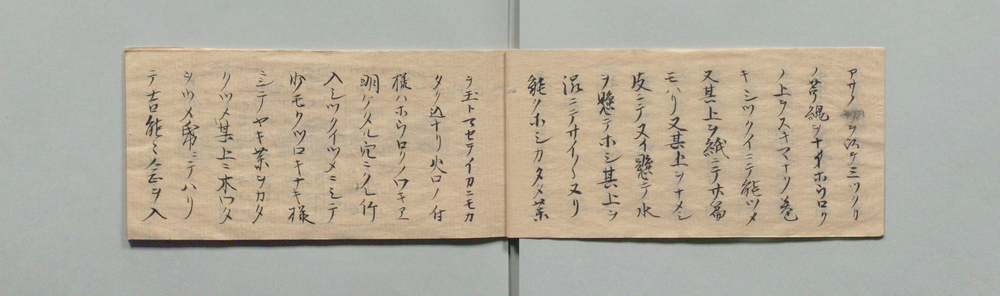 アサノ ヲ以テ三ツクリ
ノ苧縄ヲナイホウロク
ノ上ヲスキマナクノ巻
キシツクイニテ能ツメ
又其上ヲ紙ニテサ扁
モハリ又其上ヲナメシ
皮ニテ又イ懸テ水
ヲ懸テホシ其上ヲ
泥ニテサイ〱ヌリ
能クホシカタメ薬
ヲ玉トマセテイカニモカ
タク込ナリ火口ノ付
様ハホウロクノワキニ
明ケタル穴ニクル竹
入シツクイツメニシテ
少モクツロキナキ様
ミテヤキ薬ヲカタ
クツメ其上ニ木ワタ
ヲツメ帋ニテハリ
テ吉能々念ヲ入